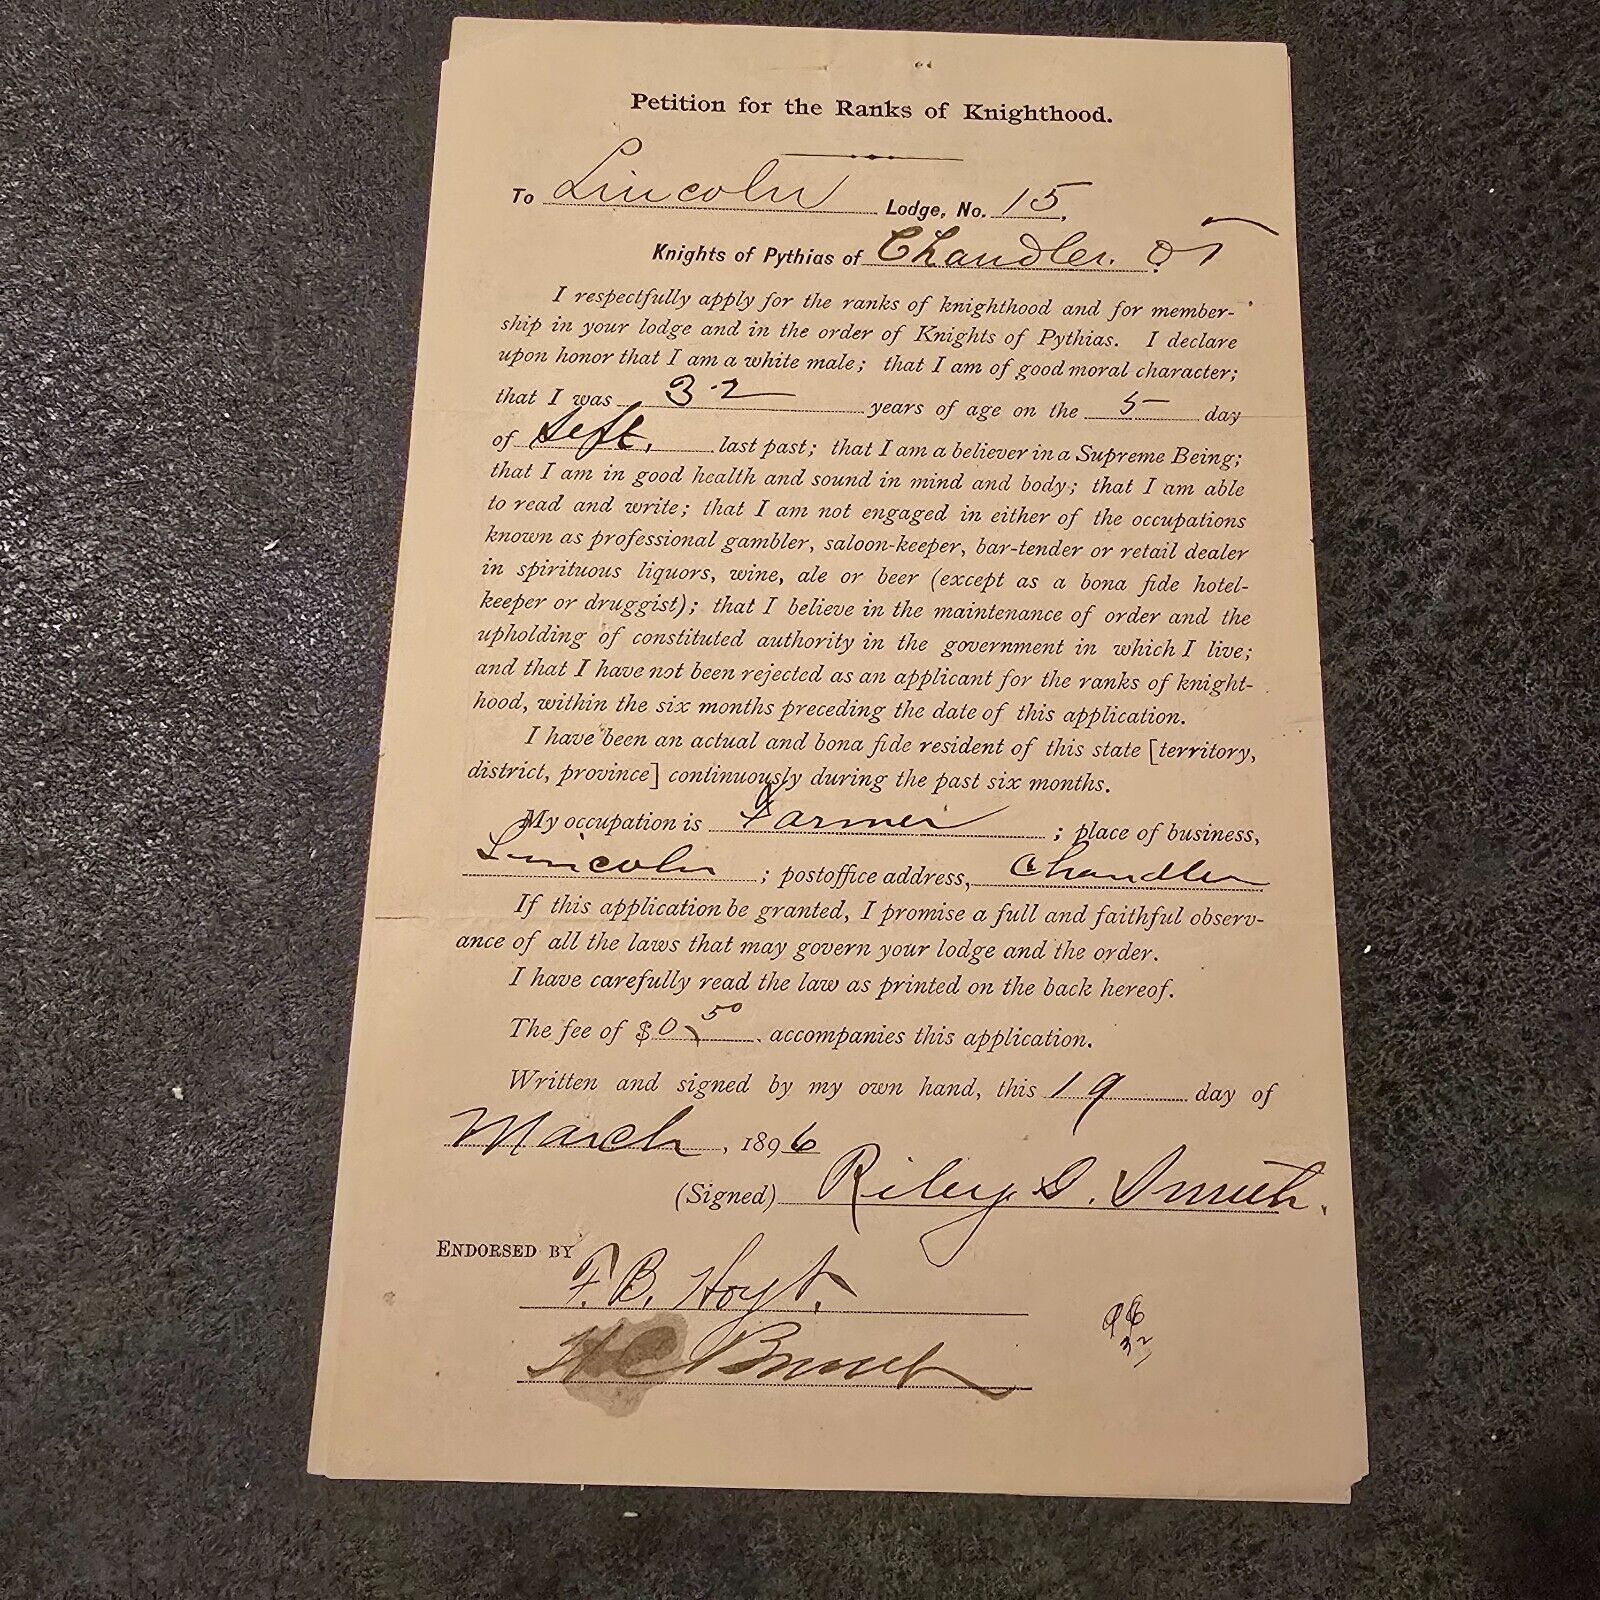 Petition for the Ranks of Knighthood.
To Lincoln Lodge, No. 15,
Knights of Pythias of Chandler. O T
I respectfully apply for the ranks of knighthood and for member-
ship in your lodge and in the order of Knights of Pythias. I declare
upon honor that I am a white male; that I am of good moral character;
that I was 32 years of age on the 5 day
of Sept. last past; that I am a believer in a Supreme Being;
that I am in good health and sound in mind and body; that I am able
to read and write; that I am not engaged in either of the occupations
known as professional gambler, saloon-keeper, bar-tender or retail dealer
in spirituous liquors, wine, ale or beer (except as a bona fide hotel-
keeper or druggist); that I believe in the maintenance of order and the
upholding of constituted authority in the government in which I live;
and that I have not been rejected as an applicant for the ranks of knight-
hood, within the six months preceding the date of this application.
I have been an actual and bona fide resident of this state [territory,
district, province] continuously during the past six months.
My occupation is Farmer ; place of business,
Lincoln ; postoffice address, Chandler
If this application be granted, I promise a full and faithful observ-
ance of all the laws that may govern your lodge and the order.
I have carefully read the law as printed on the back hereof.
The fee of $0 50 accompanies this application.
Written and signed by my own hand, this 19 day of
March, 1896
(Signed) Riley G. Smith.
ENDORSED BY
F. B. Hoyt.
H C
32